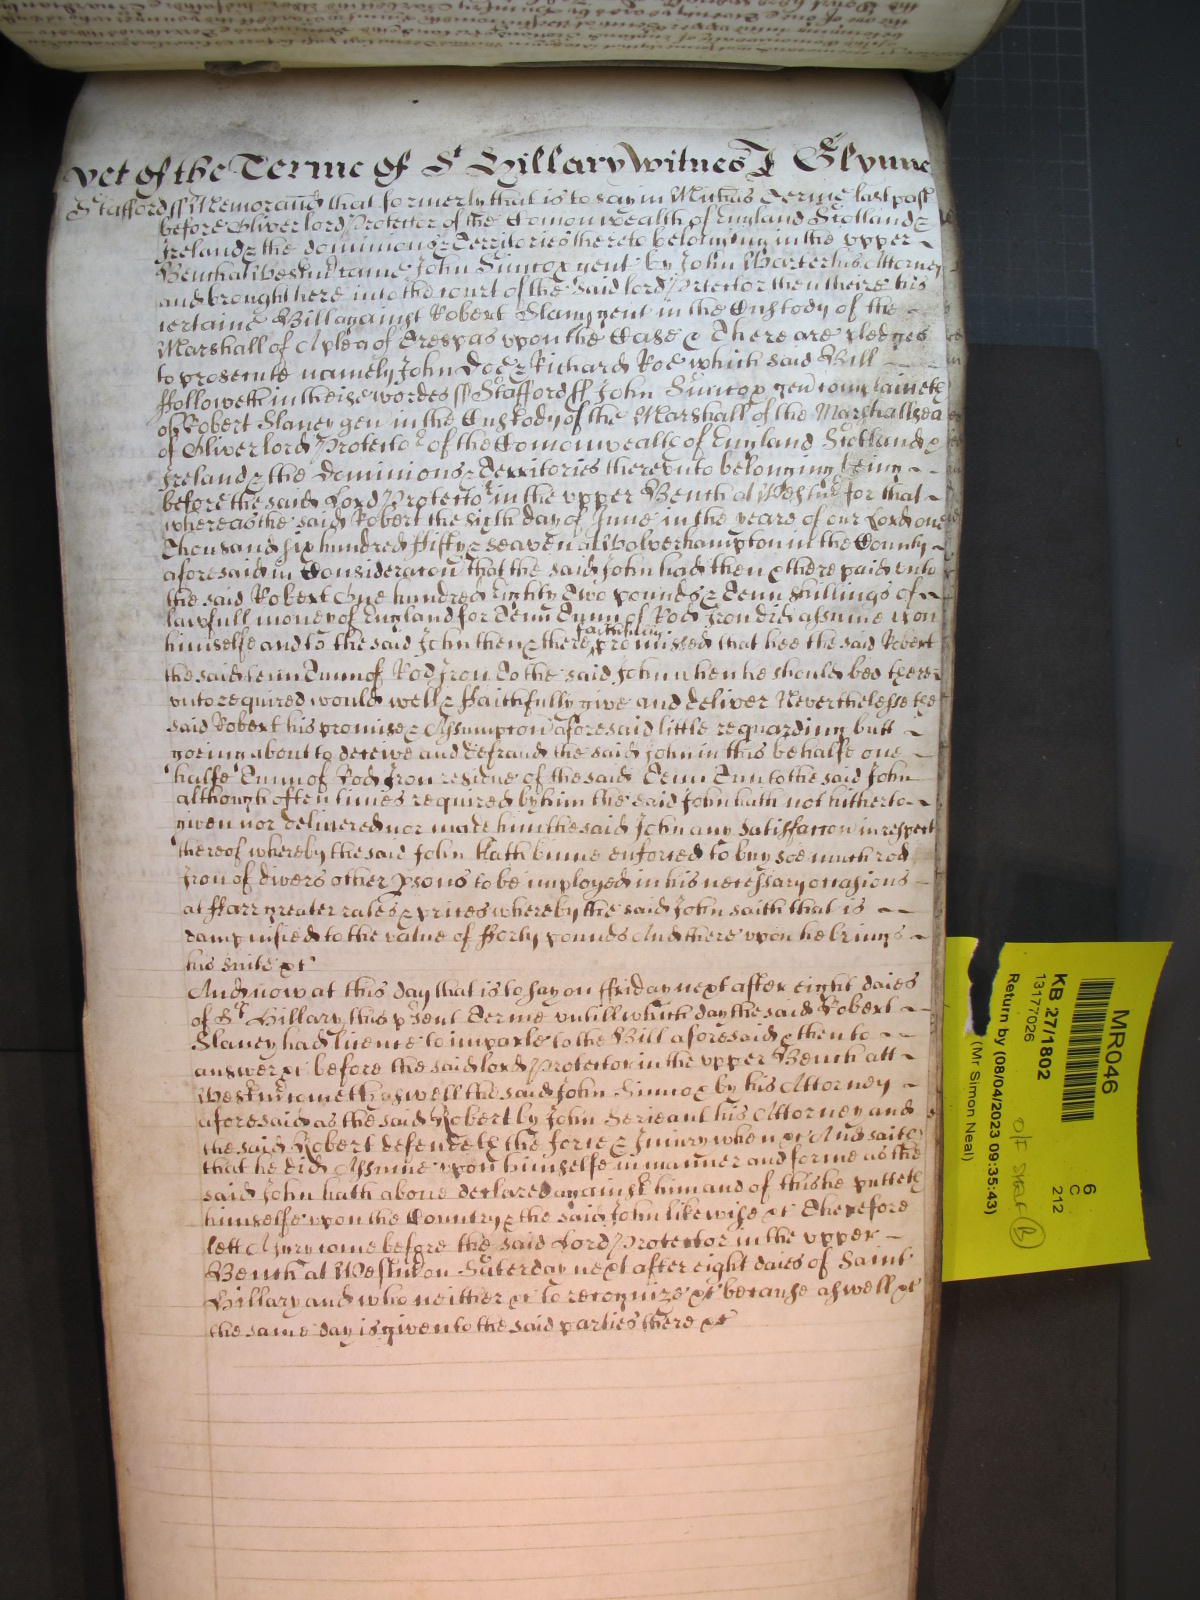 yet of the Terme of St Hillary Witnes J Glynne
Stafford ss Memorand that formerly that is to say in Michas Terme last past
before Oliver lord Protector of the Comonwealth of England Scotland &
Ireland & the dominions & Territories thereto belonging in the upper
Bench at Westmr came John Simcox gent by John Warter his Attorney
and brought here into the court of the said lord Protector then there his
certaine Bill against Robert Slany gent in the Custody of the
Marshall of A plea of Trespas upon the Case & There are pledges
to prosecute namely John Doe & Richard Roe which said Bill
ffolloweth in theise wordes ss Stafford ss John Simcox gen complaineth
of Robert Slaney gen in the Custody of the Marshall of the Marshallsea
of Oliver lord Protector of the Comonwealth of England Scotland &
Ireland & the Dominions & Territories thereunto belonging being
before the said Lord Protector in the upper Bench at Westmr for that
whereas the said Robert the sixth day of June in the yeare of our Lord one
Thousand six hundred ffifty & seaven at Wolverhampton in the County
aforesaid in Consideracon that the said John had then & there paid unto
the said Robert One hundred Eighty Two pounds & Tenn shillings of
lawfull money of England for Tenn Tunn of Rod Iron did assume upon
himselfe and to the said John then & there faithfully promissed that hee the said Robert
the said tenn Tunn of Rod Iron To the said John when he should bee there
unto required would well & ffaithfully give and deliver Neverthelesse the
said Robert his promise & Assumpcon aforesaid little reguarding butt
goeing about to deceive and defraud the said John in this behalfe one
halfe Tunn of Rod Iron residue of the said Tenn Tun to the said John
although often times required by him the said John hath not hitherto
given nor delivered nor made him the said John any Satisffaccon in respect
thereof whereby the said John hath binne enforced to buy soe much rod
Iron of divers other psons to be imployed in his necessary occasions
at ffarr greater rates & prices whereby the said John saith that is
dampnified to the value of fforty pounds And there upon he brings
his suite &c
And now at this day that is to say on ffriday next after eight daies
of St Hillary this psent Terme untill which day the said Robert
Slaney had licence to imparle to the Bill aforesaid & then to
answer &c before the said lord Protector in the upper Bench att
Westmr cometh aswell the said John Simcox by his Attorney
aforesaid as the said Robert by John Serieant his Attorney and
the said Robert defendeth the force & Iniury when &c And saith
that he did Assume upon himselfe in manner and forme as the
said John hath above declared against him and of this he putteth
himselfe upon the Country & the said John likewise &c Therefore
lett A Jury come before the said Lord Protector in the upper
Bench at Westmr on Saterday next after eight daies of Saint
Hillary and who neither &c to recognize &c because aswell &c
the same day is given to the said parties there &c
MR046
KB 27/1802
13177026
Return by (08/04/2023 09:35:43)
(Mr Simon Neal)
6
C
212